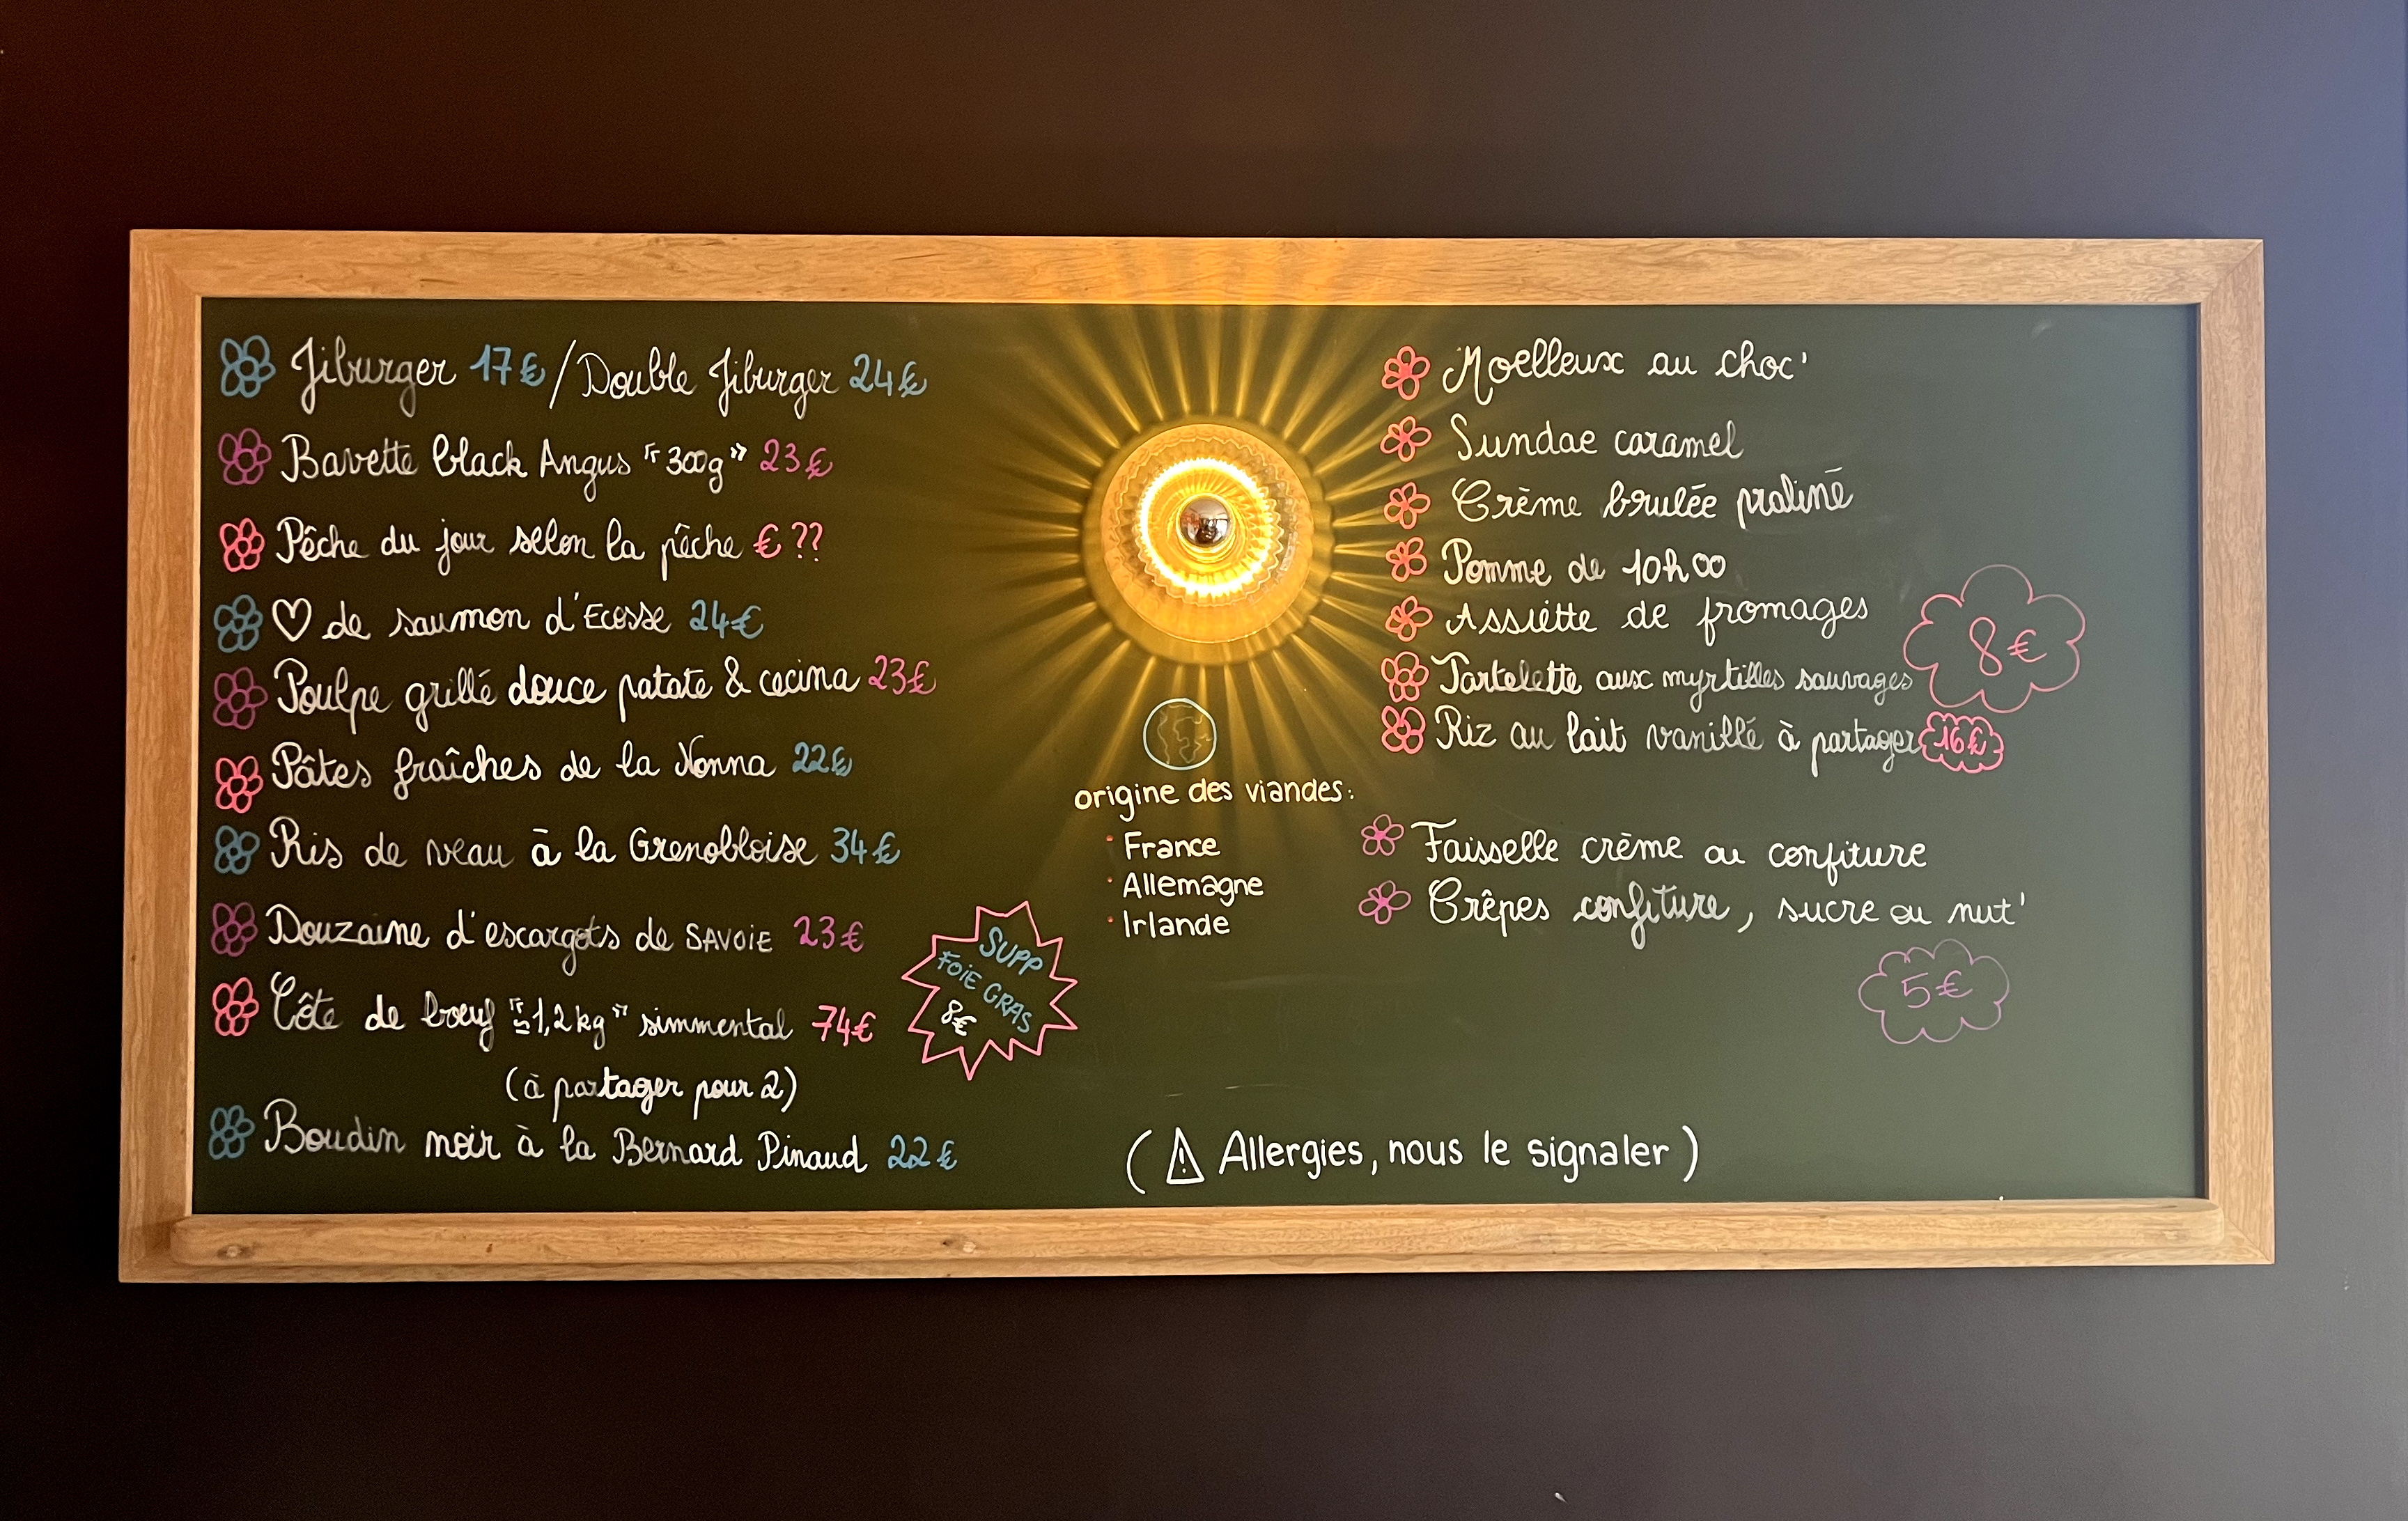 Jiburger 17€ / Double Jiburger 24€
Bavette black Angus "300g" 23€
Pêche du jour selon la pêche € ??
♡ de saumon d'Ecosse 24€
Poulpe grillé douce patate & cecina 23€
Pâtes fraîches de la Nonna 22€
Ris de veau à la Grenobloise 34€
Douzaine d'escargots de SAVOIE 23€
Côte de bœuf "≃1,2kg" simmental 74€
(à partager pour 2)
Boudin noir à la Bernard Pinaud 22€
SUPP
FOIE GRAS
8€
origine des viandes:
· France
· Allemagne
· Irlande
Moelleux au choc'
Sundae caramel
Crème brulée praliné
Pomme de 10h00
Assiette de fromages
8€
Tartelette aux myrtilles sauvages
Riz au lait vanillé à partager 16€
Faisselle crème ou confiture
Crêpes confiture, sucre ou nut'
5€
(⚠ Allergies, nous le signaler)